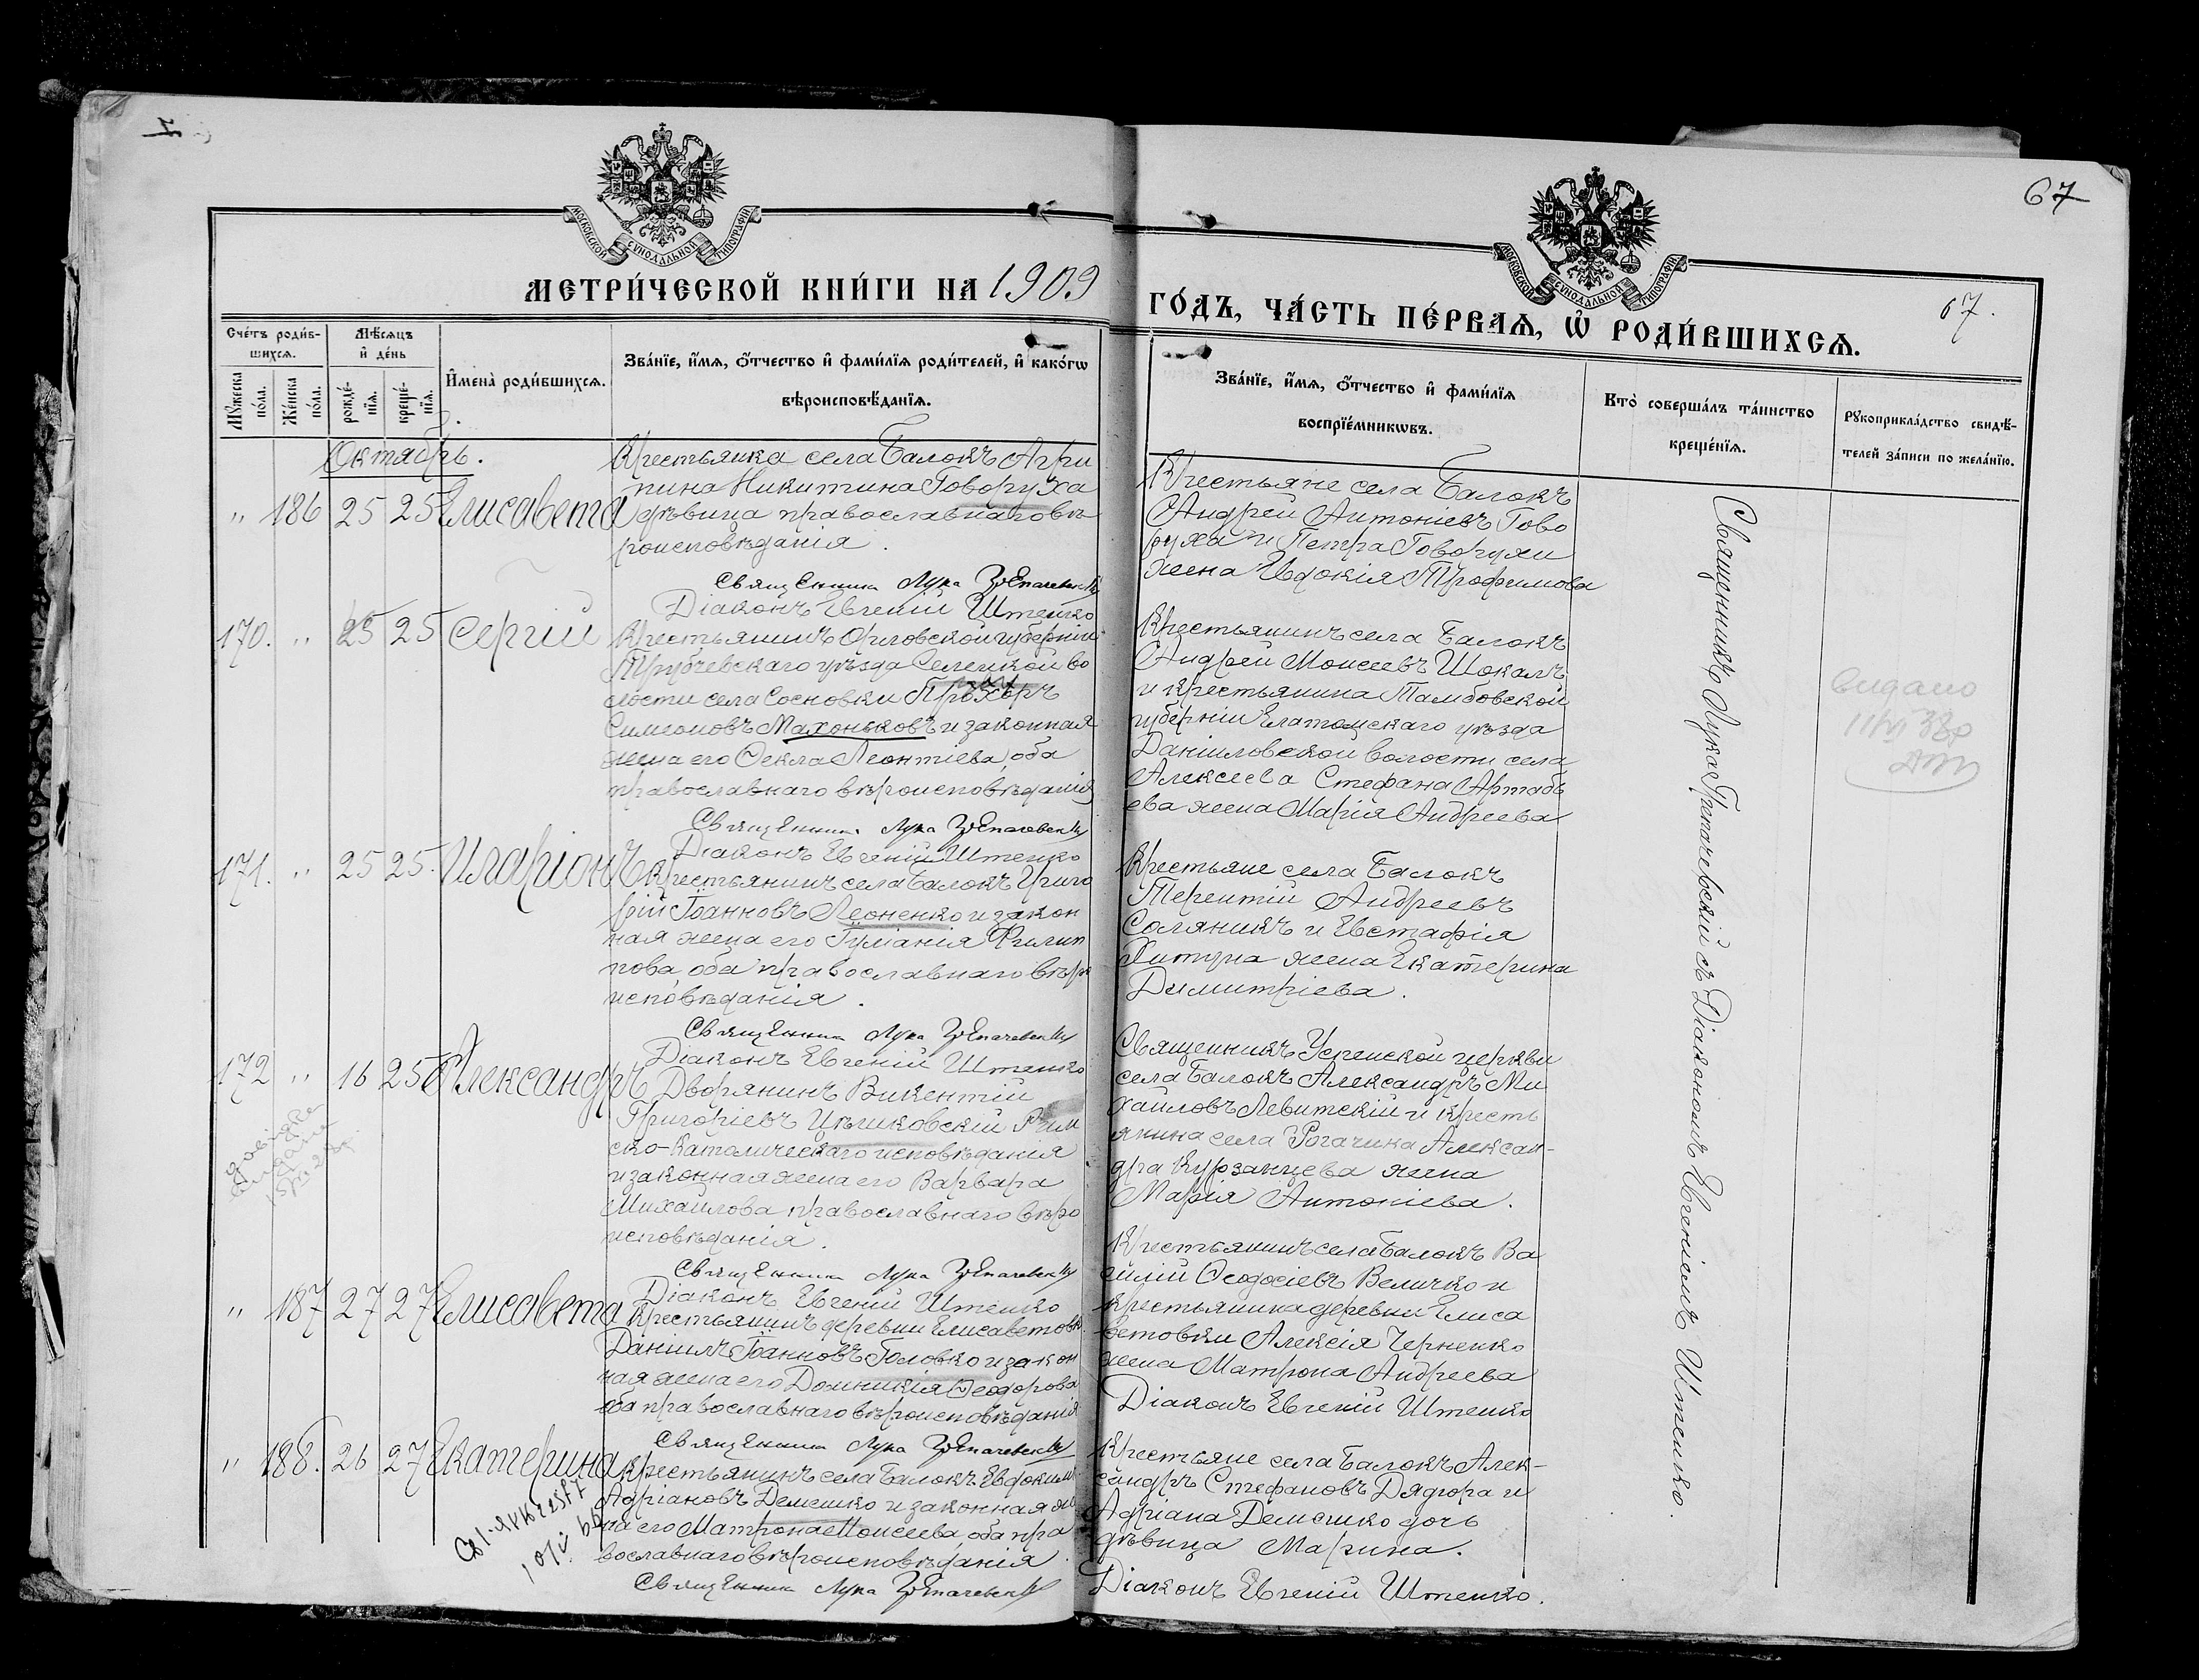 67
МОСКОВСКОЙ СѴНОДАЛЬНОЙ ТИПОГРАФІИ
МОСКОВСКОЙ СѴНОДАЛЬНОЙ ТИПОГРАФІИ
МЕТРИ́ЧЕСКОЙ КНИ́ГИ НА 1909
ГО́ДЪ, ЧА́СТЬ ПЕ́РВАѦ, Ѽ РОДИ́ВШИХСѦ.
67.
Сче́тъ роди́в-
шихсѧ.
Мѣ́сѧцъ
и҆ де́нь
Мꙋ́жеска
по́ла.
Же́нска
по́ла.
рожде́-
нїѧ.
креще́-
нїѧ.
И҆мена̀ роди́вшихсѧ.
Зва́нїе, и҆́мѧ, ѻ҆́тчество и҆ фами́лїѧ роди́телей, и҆ како́гѡ
вѣроисповѣ́данїѧ.
Зва́нїе, и҆́мѧ, ѻ҆́тчество и҆ фами́лїѧ
воспрїе́мникѡвъ.
Кто̀ соверша́лъ та́инство
креще́нїѧ.
Рꙋкоприкла́дство свидѣ́-
телей за́писи по жела́нїю.
Октябрь.
" 186 25 25 Елисавета
Крестьянка села Балокъ Агри
пина Никитина Говоруха
дѣвица православнаго вѣ
роисповѣданія.
Священникъ Лука
Діаконъ Евгеній Штепко
Крестьяне села Балокъ
Андрей Антоніевъ Гово
руха и Петра Говорухи
жена Евдокія Трофимова
170. " 25 25 Сергій
Крестьянинъ Орловской губерніи
Трубчевскаго уѣзда Селецкой во
лости села Сосновки Прохоръ
Симеоновъ Махоньковъ и законная
жена его Ѳекла Леонтіева, оба
православнаго вѣроисповѣданія
Священникъ Лука
Діаконъ Евгеній Штепко
Крестьянинъ села Балокъ
Андрей Моисеевъ Шокалъ
и крестьянина Тамбовской
губерніи Елатомскаго уѣзда
Даниловской волости села
Алексеева Стефана Артабь
ева жена Марія Андреева
видано
171. " 25 25. Иларіонъ
Крестьянинъ села Балокъ Григо
рій Іоанновъ Леоненко и закон
ная жена его Гуліанія Филип
пова, оба православнаго вѣро
исповѣданія.
Священникъ Лука
Діаконъ Евгеній Штепко
Крестьяне села Балокъ
Терентій Андреевъ
Соляникъ и Евстафія
Хитуна жена Екатерина
Димитріева.
172 " 16 25 Александръ
Дворянинъ Викентій
Григоріевъ Цѣшковскій Рим
ско-католическаго исповѣданія
и законная жена его Варвара
Михайлова православнаго вѣро
исповѣданія.
Священникъ Лука
Діаконъ Евгеній Штепко
Священникъ Успенской церкви
села Балокъ Александръ Ми
хайловъ Левитскій и кресть
янина села Рогачика Алексан-
дра Курзанцева жена
Марія Антоніева.
" 187 27 27 Елисавета
Крестьянинъ деревни Елисаветовки
Даніилъ Іоанновъ Головко и закон
ная жена его Домникія Ѳеодорова
оба православнаго вѣроисповѣданія
Священникъ Лука
Крестьянинъ села Балокъ Ва
силій Ѳеодосіевъ Величко и
крестьянина деревни Елиса
ветовки Алексія Черненко
жена Матрона Андреева
Діаконъ Евгеній Штепко
" 188. 26 27 Екатерина
Крестьянинъ села Балокъ Евдокимъ
Адріановъ Демешко и законная же
на его Матрона Моисеева, оба пра
вославнаго вѣроисповѣданія.
Священникъ Лука
Крестьяне села Балокъ Алек-
сандръ Стефановъ Дядюра и
Адріана Демешко дочь
дѣвица Марина.
Діаконъ Евгеній Штепко.
Священникъ Лука Трепачевскій съ Діакономъ Евгеніемъ Штепко.